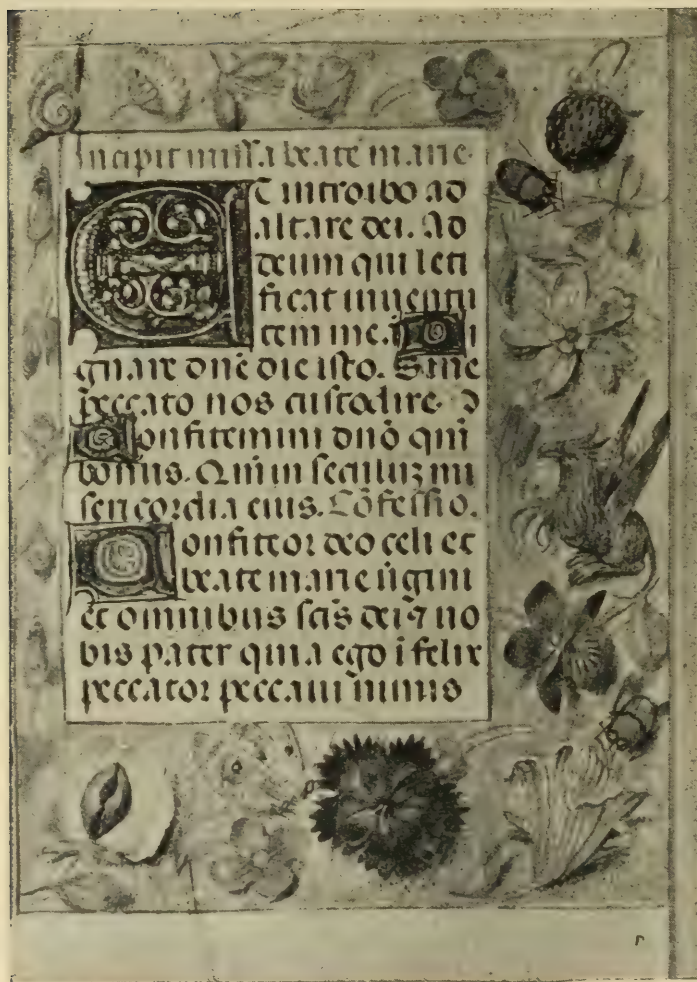 Incipit missa beate marie.
Et introibo ad
altare dei. Ad
deum qui leti
ficat iuventu
tem meā. Di
gnare dn̄e die isto. Sine
peccato nos custodire. 
Confitemini dn̄o qm̄
bonus. Qm̄ in seculuꝫ mi
sericordia eius. Cōfessio.
Confiteor deo celi et
beate marie v̄gini
et omnibus sc̄is dei ⁊ vo
bis pater quia ego ifelix
peccator peccaui nimis
r